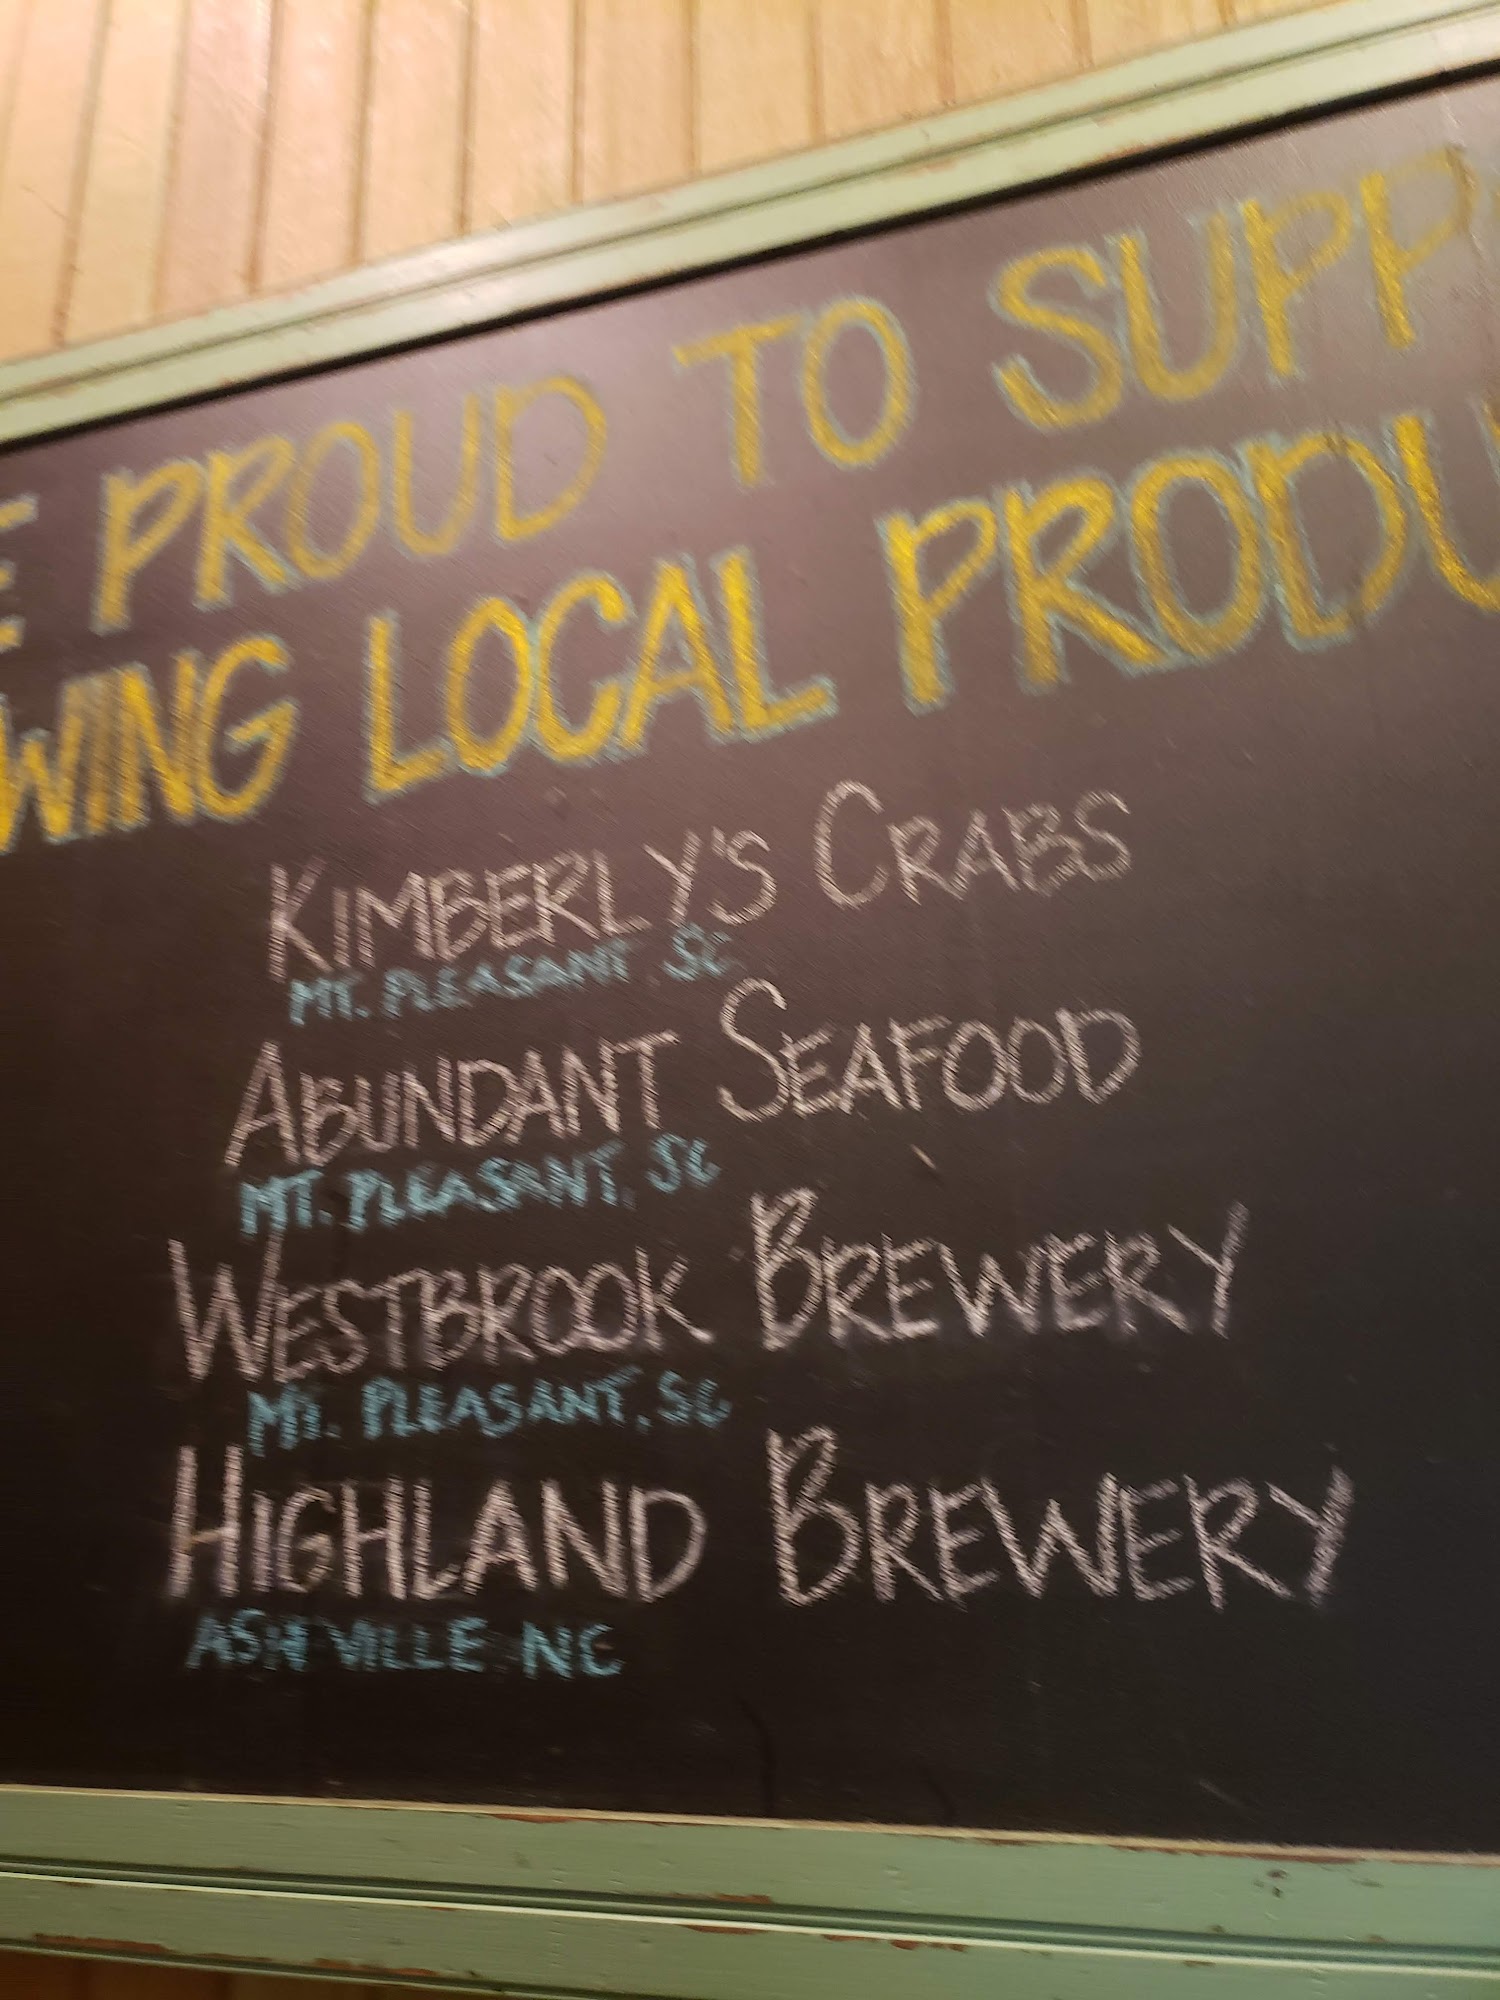 E PROUD TO SUPP
WING LOCAL PRODU
KIMBERLY'S CRABS
MT. PLEASANT, SC
ABUNDANT SEAFOOD
MT. PLEASANT, SC
WESTBROOK BREWERY
MT. PLEASANT, SC
HIGHLAND BREWERY
ASHVILLE NC